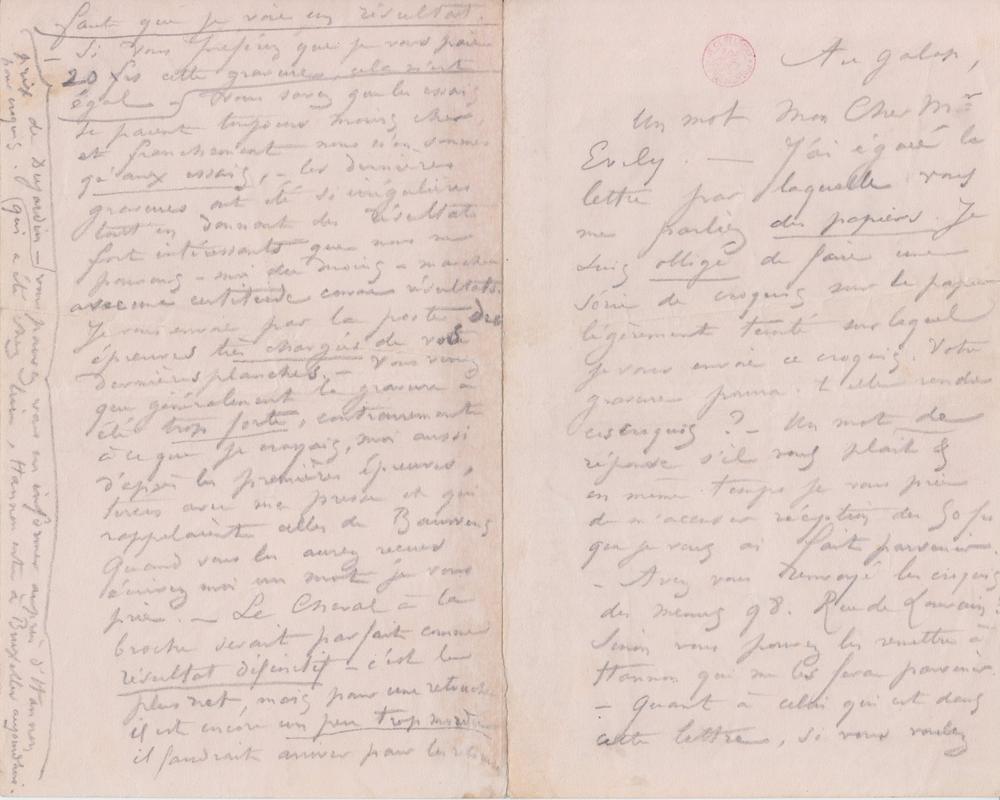 Au galop,
Un mot Mon Cher Mr
Evely. — J'ai égaré la
lettre par laquelle vous
me parliez des papiers. Je
suis obligé de faire une
série de croquis sur le papier
légèrement teinté sur lequel
je vous envoie ce croquis. Votre
gravure pourra-t-elle rendre
ces croquis ? — Un mot de
réponse s'il vous plait &
en même temps je vous prie
de m'accuser réception des 50 frs
que je vous ai fait parvenir.
— Avez vous renvoyé les croquis
des menus 98. Rue de Louvain.
Sinon vous pouvez les remettre à
Hannon qui me les fera parvenir.
— Quant à celui qui est dans
cette lettre, si vous voulez
faut que je voie un résultat.
Si vous préférez que je vous paie
20 frs cette gravure, cela m'est
égal — Vous savez que les essais
se paient toujours moins cher,
et franchement nous n'en sommes
qu'aux essais, — les dernières
gravures ont été si irrégulières
tout en donnant des résultats
fort intéressants que nous ne
pouvons — moi du moins — marcher
avec une certitude comme résultats.
Je vous envoie par la poste des
épreuves très chargées de vos
dernières planches. — Vous verrez
que généralement la gravure a
été trop forte, contrairement
à ce que je croyais, moi aussi
d'après les premières épreuves,
tirées avec ma presse et qui
rappelaient celles de Bauwens
Quand vous les aurez reçues
écrivez moi un mot je vous
prie. — Le Cheval à la
broche serait parfait comme
résultat définitif — c'est le
plus net, mais pour une retouche
il est encore un peu trop mordu
il faudrait arriver pour les
prix de Dujardin — vous pouvez vous en informer auprès d'Hannon
pour croquis. (qui a été chez lui, Hannon est à Bruxelles aujourd'hui.